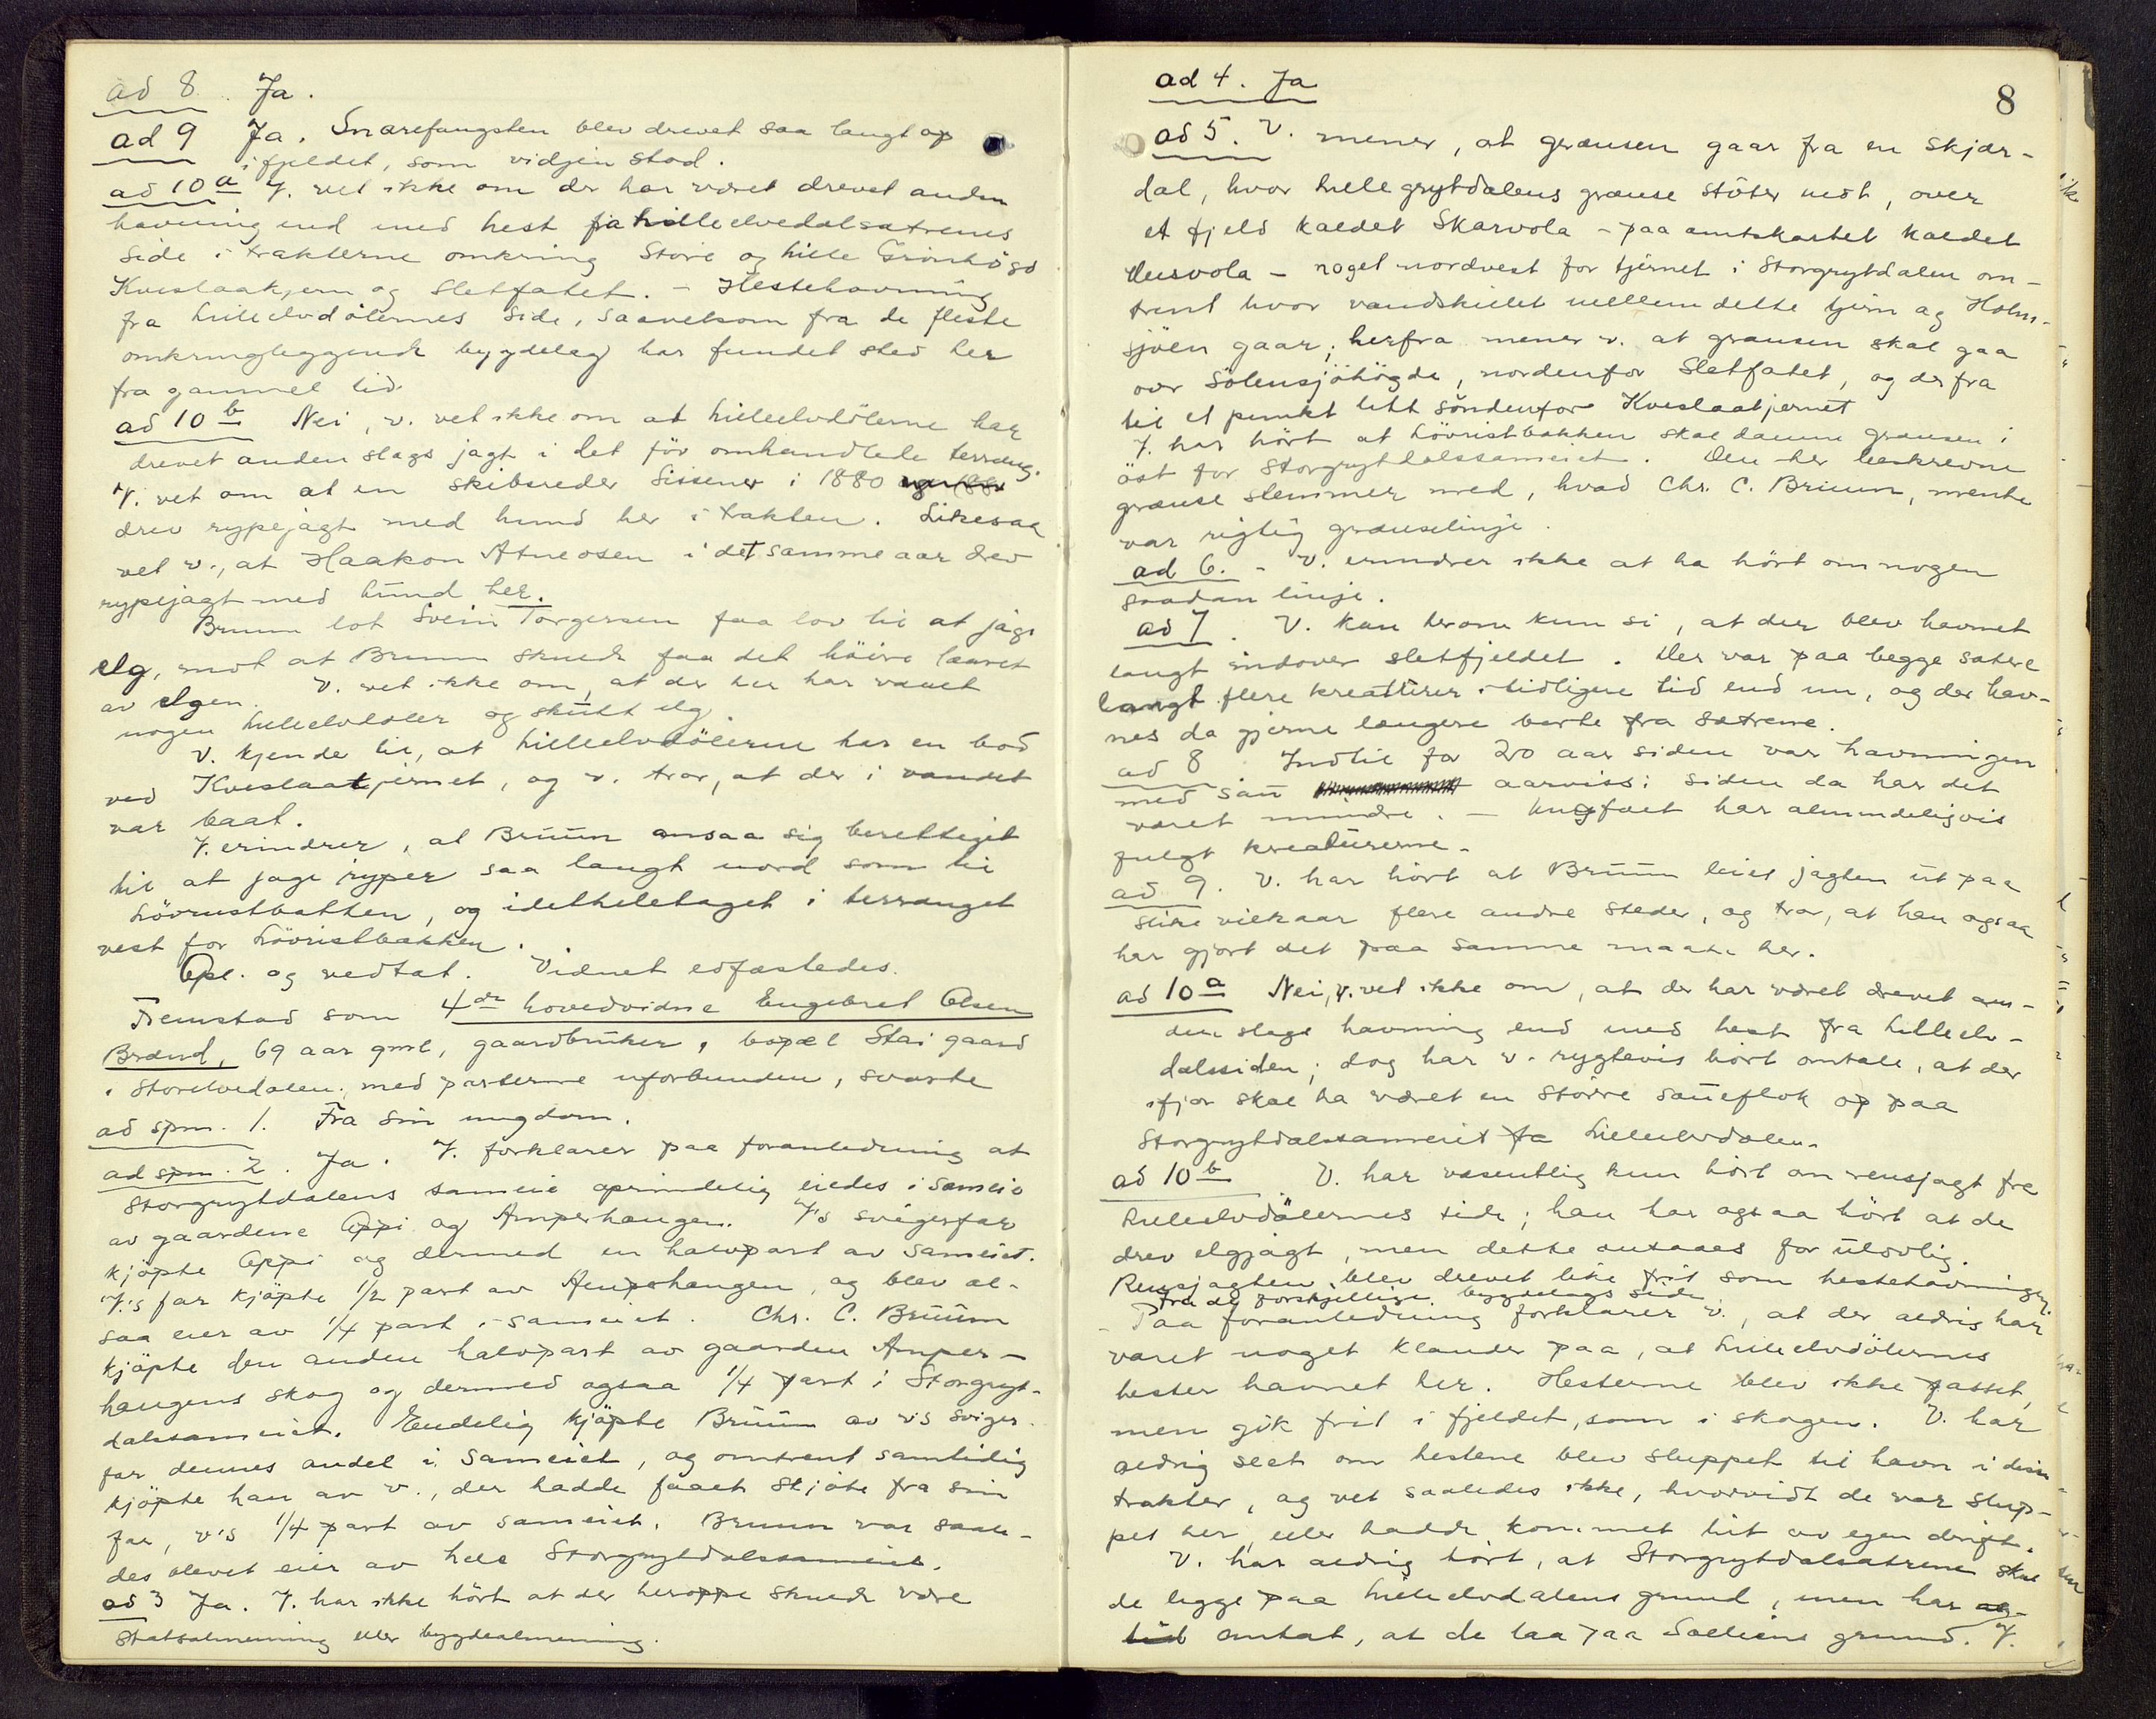 ad 8. Ja.
ad 9 Ja. Snarefangsten blev drevet saa langt op
i fjeldet, som vidjein stod.
ad 10 a V. vet ikke om der har været drevet anden
havning end med hest fra Lilleelvedalsætrenes
side i trakterne omkring Store og Lille Grönhögd
Kveslaatjern og Sletfatet. - Hestehavning
fra Lilleelvdölernes side, saavelsom fra de fleste
omkringliggende bygdelag har fundet sted her
fra gammel tid.
ad 10 b Nei, v. vet ikke om at Lilleelvdölerne har
drevet anden slags jagt i det för omhandlede terræng.
V. vet om at en skibsreder Sissener i 1880
drev rypejagt med hund her i trakten. Likesaa
vet v., at Haakon Atneosen i det samme aar drev
rypejagt med hund her.
Bruun lot Svein Torgersen faa lov til at jage
elg, mot at Bruun skulde faa det höire laaret
av elgen. V. vet ikke om, at der her har været
nogen Lilleelvdöler og skutt elg.
V. kjender til, at Lilleelvdölerne har en bod
ved Kveslaatjernet, og v. tror, at der i vandet
var baat.
V. erindrer, at Bruun ansaa sig berettiget
til at jage ryper saa langt nord som til
Lövristbakken, og idetheletaget i terrænget
vest for Lövristbakken.
Opl. og vedtat. Vidnet edfæstedes.
Fremstod som 4de hovedvidne Engebret Olsen
Brænd, 69 aar gml, gaardbruker, bopæl Stai gaard
i Storelvedalen, med parterne uforbunden, svarte
ad spm. 1. Fra sin ungdom.
ad spm. 2. Ja. V. forklarer paa foranledning at
Storgrytdalens sameie oprindelig eiedes i sameie
av gaardene Oppi og Amperhaugen. V's svigerfar
kjöpte Oppi og dermed en halvpart av sameiet.
V.'s far kjöpte 1/2 part av Amperhaugen, og blev al-
saa eier av 1/4 part i sameiet. Chr. C. Bruun
kjöpte den anden halvpart av gaarden Amper-
haugens skog og dermed ogsaa 1/4 part i Storgryt-
dalssameiet. Endelig kjöpte Bruun av v's sviger-
far dennes andel i sameiet, og omtrent samtidig
kjöpte han av v., der hadde faaet skjöte fra sin
far, v's 1/4 part av sameiet. Bruun var saale-
des blevet eier av hele Storgrytdalssameiet.
ad 3 Ja. V. har ikke hört at der heroppe skulde være
Statsalmenning eller bygdealmenning.
8
ad 4. Ja
ad 5. V. mener, at grænsen gaar fra en Skjær-
dal, hvor Lillegrytdalens grænse stöter mot, over
et fjeld kaldet Skarvola - paa amtskartet kaldet
Uesvola - noget nordvest for tjernet i Storgrytdalen om-
trent hvor vandskillet mellem dette tjern og Holm-
sjöen gaar; herfra mener v. at grænsen skal gaa
over Sölensjöhögde, nordenfor Sletfatet, og derfra
til et punkt litt söndenfor Kveslaatjernet
V. har hört at Lövristbakken skal danne grænsen i
öst for Storgrytdalssameiet. Den her beskrevne
grænse stemmer med, hvad Chr. C. Bruun, mente
var rigtig grænselinje.
ad 6. - V. erindrer ikke at ha hört om nogen
saadan linje.
ad 7. V. kan herom kun si, at der blev havnet
langt indover sletfjeldet. Der var paa begge sætre
langt flere kreaturer i tidligere tid end nu, og der hav-
nes da gjerne længere borte fra sætrene.
ad 8 Indtil for 20 aar siden var havningen
med sau aarviss; siden da har det
været mindre. - Ungfæet har almindeligvis
fulgt kreaturerne.
ad 9. V. har hört at Bruun leiet jagten ut paa
slike vilkaar flere andre steder, og tror, at han ogsaa
har gjort det paa samme maate her.
ad 10 a Nei, v. vet ikke om, at der har været drevet an-
den slags havning end med hest fra Lilleelv-
dalssiden; dog har v. rygtevis hört omtale, at der
ifjor skal ha været en större saueflok op paa
Storgrytdalssameiet fra Lilleelvdalen.
ad 10 b V. har væsentlig kun hört om rensjagt fra
Lilleelvdölernes side; han har ogsaa hört at de
drev elgjagt, men dette ansaaes for ulovlig.
Rensjagten blev drevet like frit som hestehavningen
fra de forskjellige bygdelags side.
- Paa foranledning forklarer v., at der aldrig har
været noget klander paa, at Lilleelvdölernes
hester havnet her. Hesterne blev ikke passet,
men gik frit i fjeldet, som i skogen. V. har
aldrig seet om hestene blev sluppet til havn i disse
trakter, og vet saaledes ikke, hvorvidt de var slup-
pet her, eller hadde kommet hit av egen drift.
V. har aldrig hört, at Storgrytdalsætrene skul
de ligge paa Lilleelvdalens grund, men har al-
tid antat, at de laa paa Solliens grund. V.